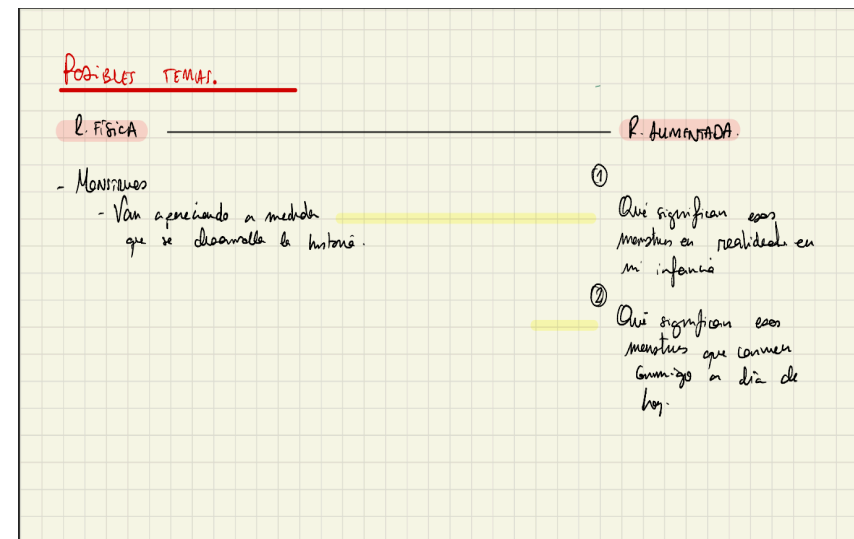 POSIBLES TEMAS.
R. FÍSICA
R. AUMENTADA.
- MONSTRUOS
- Van apareciendo a medida
que se desarrolla la historia.
①
Qué significan esos
monstruos en realidad en
mi infancia
②
Qué significan esos
monstruos que conviven
conmigo a día de
hoy.